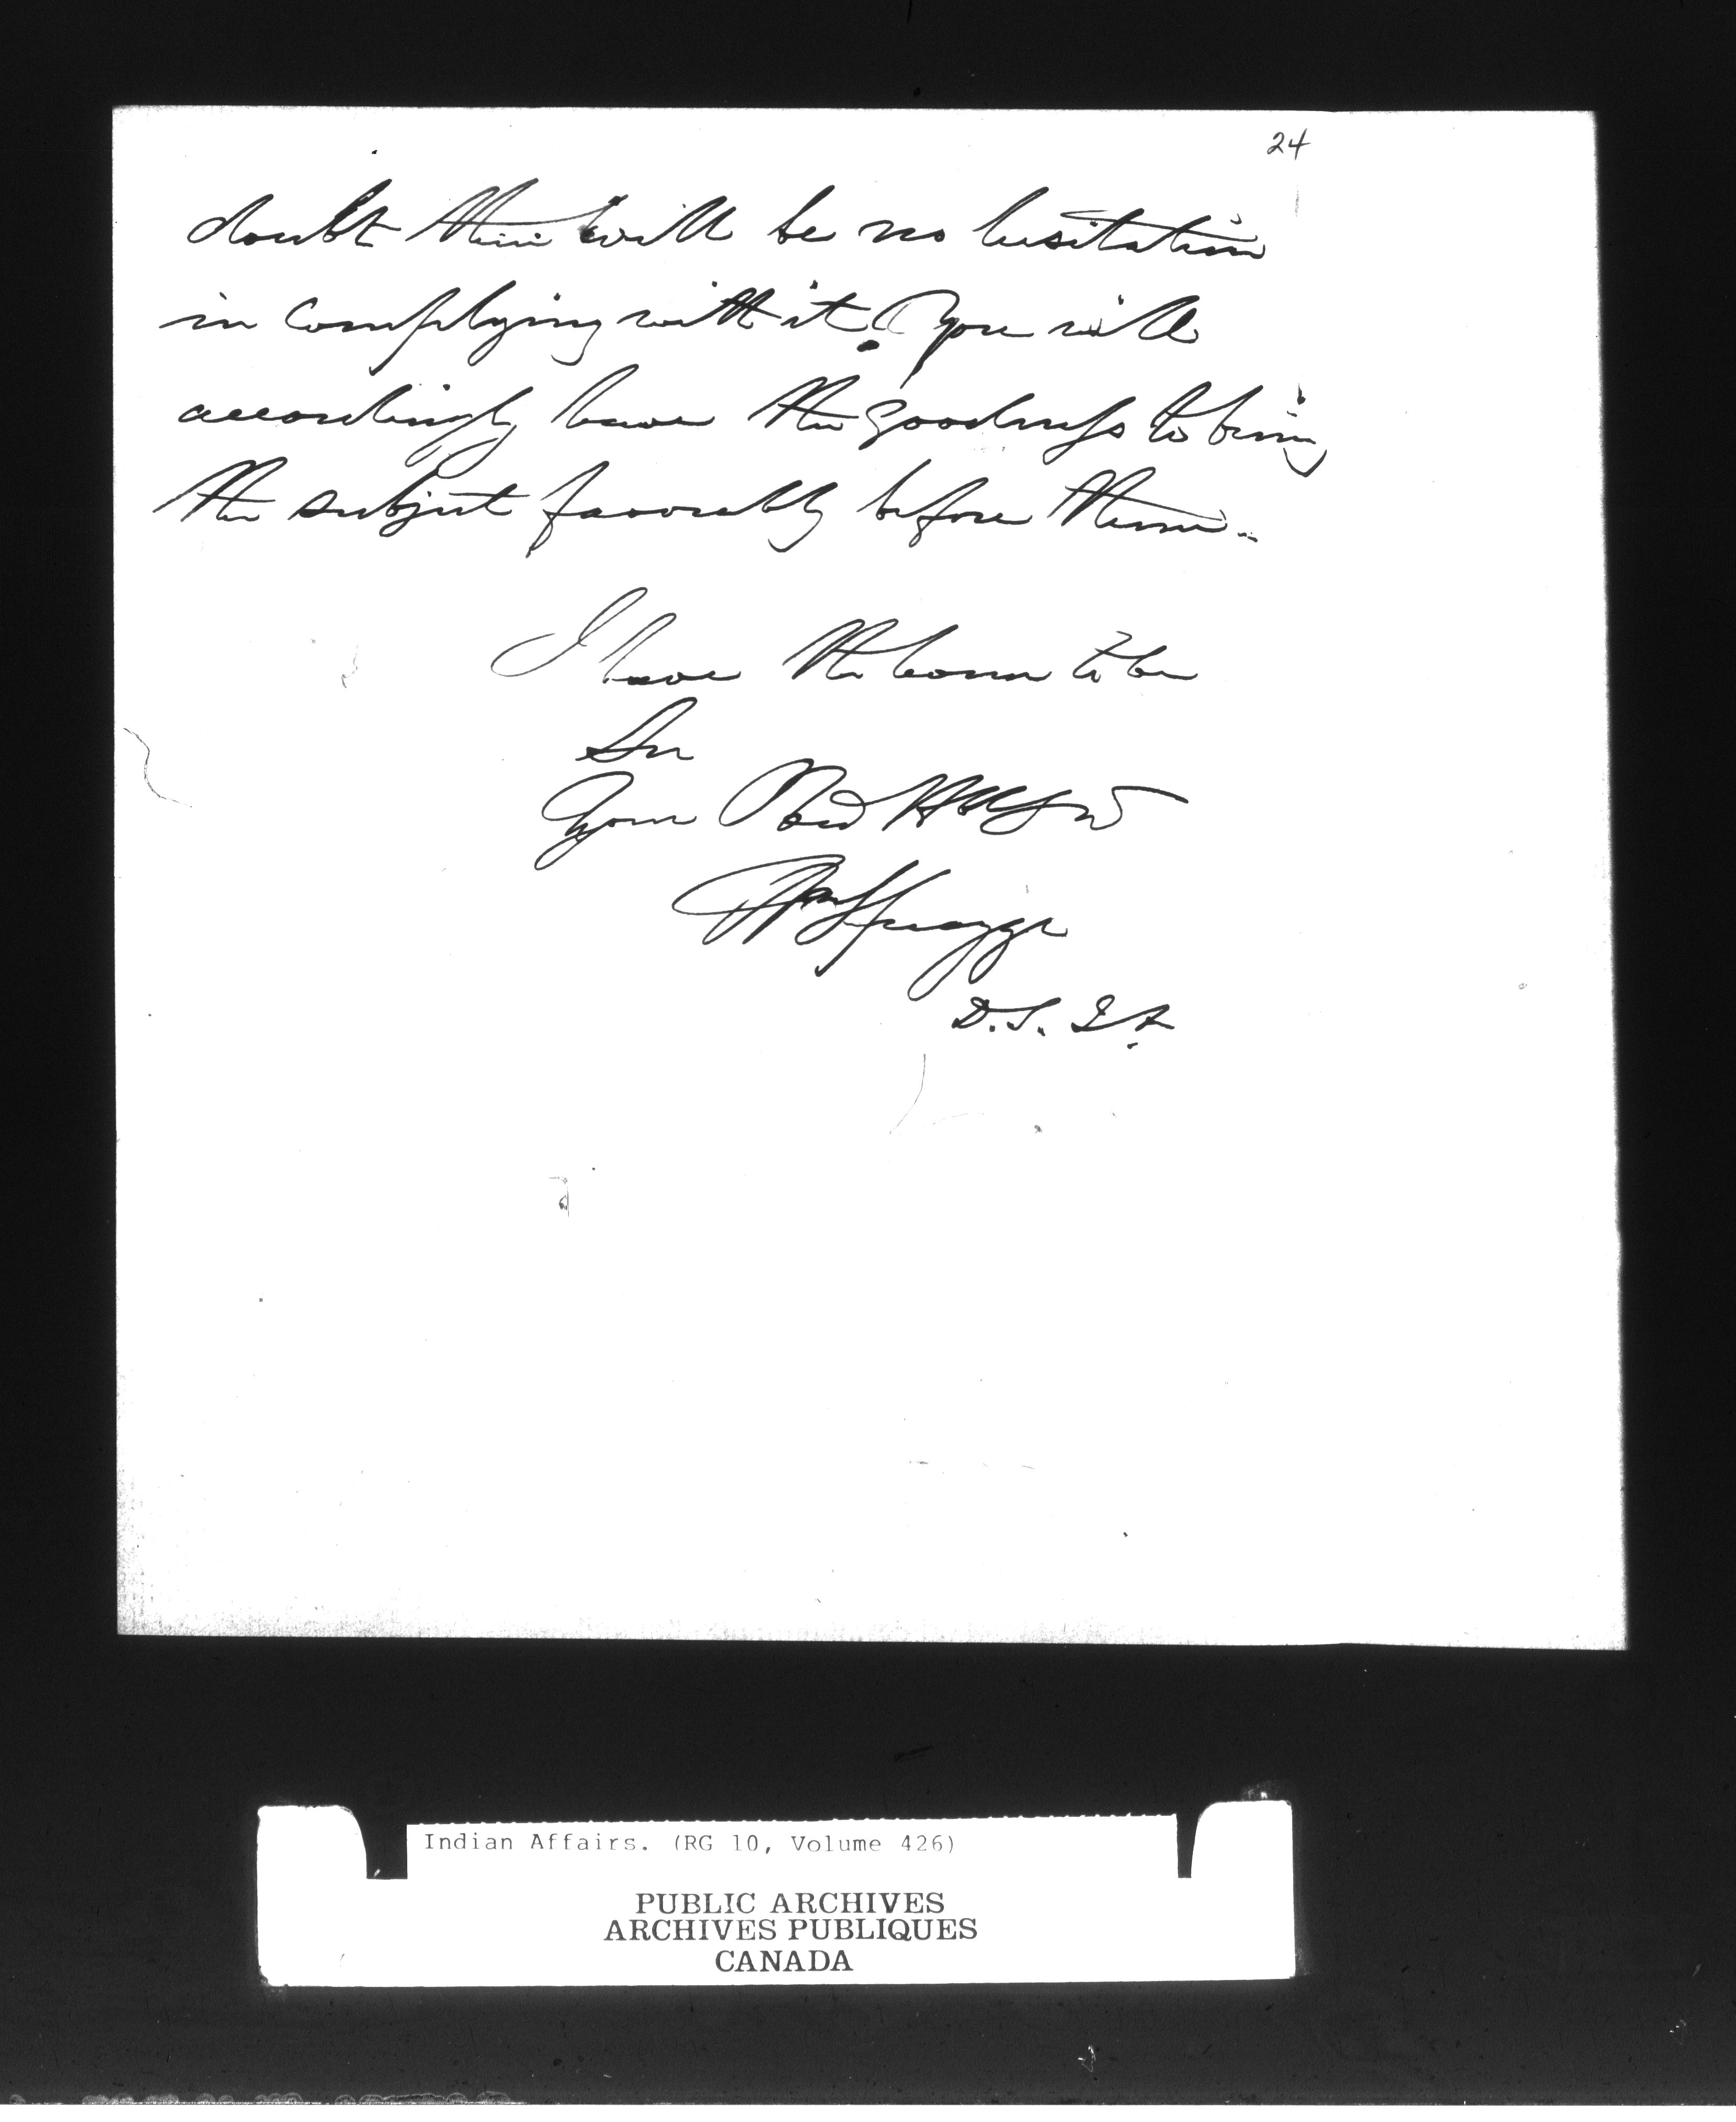 24
doubt there will be no hesitation
in complying with it. You will
accordingly have the goodness to bring
the subject favorably before them.
I have the honor to be
Sir
Your Obd
Wm Spragge
D.S. I A.
Indian Affairs. (RG 10, Volume 426)
PUBLIC ARCHIVES
ARCHIVES PUBLIQUES
CANADA